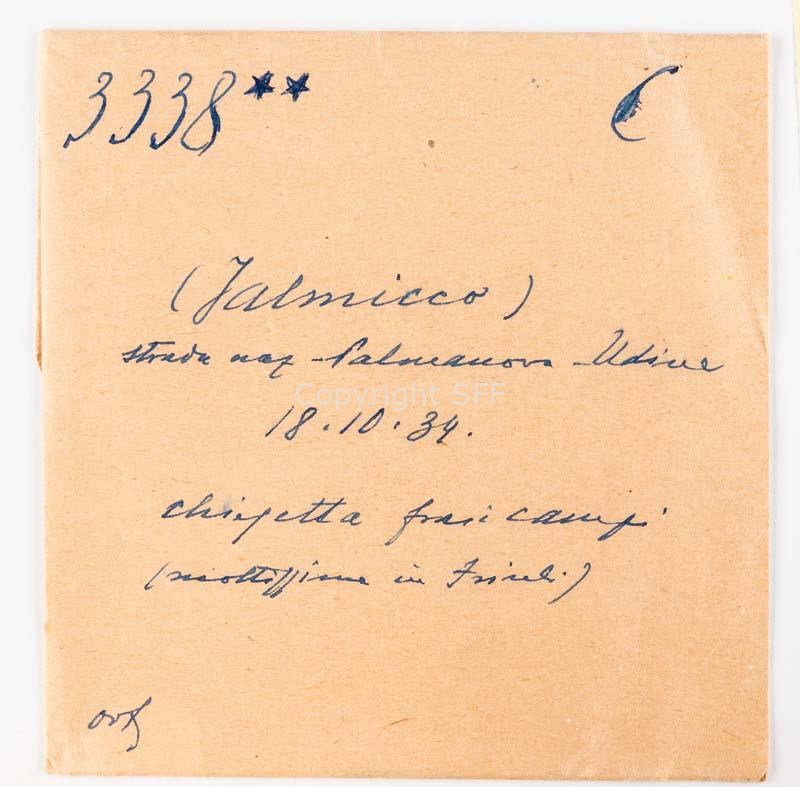 3338** C
(Jalmicco)
strada naz - Palmanova - Udine
Copyright SFF
18.10.34.
chiesetta frai campi
(moltissime in Friuli)